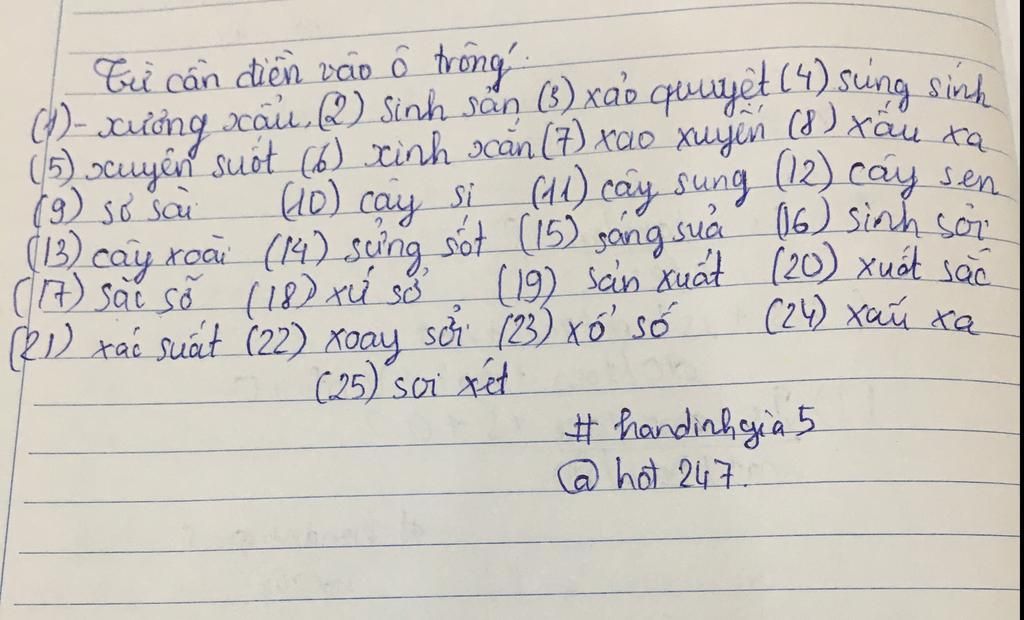 Từ cần điền vào ô trống:
(1)- xưởng xẩu, (2) sinh sản (3) xảo quyệt (4) súng sính
(5) xuyên suốt (6) xinh xắn (7) xao xuyến (8) xấu xa
(9) sơ sài (10) cây si (11) cây sung (12) cây sen
(13) cây xoài (14) sửng sốt (15) sáng sủa (16) sinh sôi
(17) sặc sỡ (18) xứ sở (19) sản xuất (20) xuất sắc
(21) xác suất (22) xoay sở (23) xổ số (24) xấu xa
(25) soi xét
# handinhgia 5
@ hot 247.